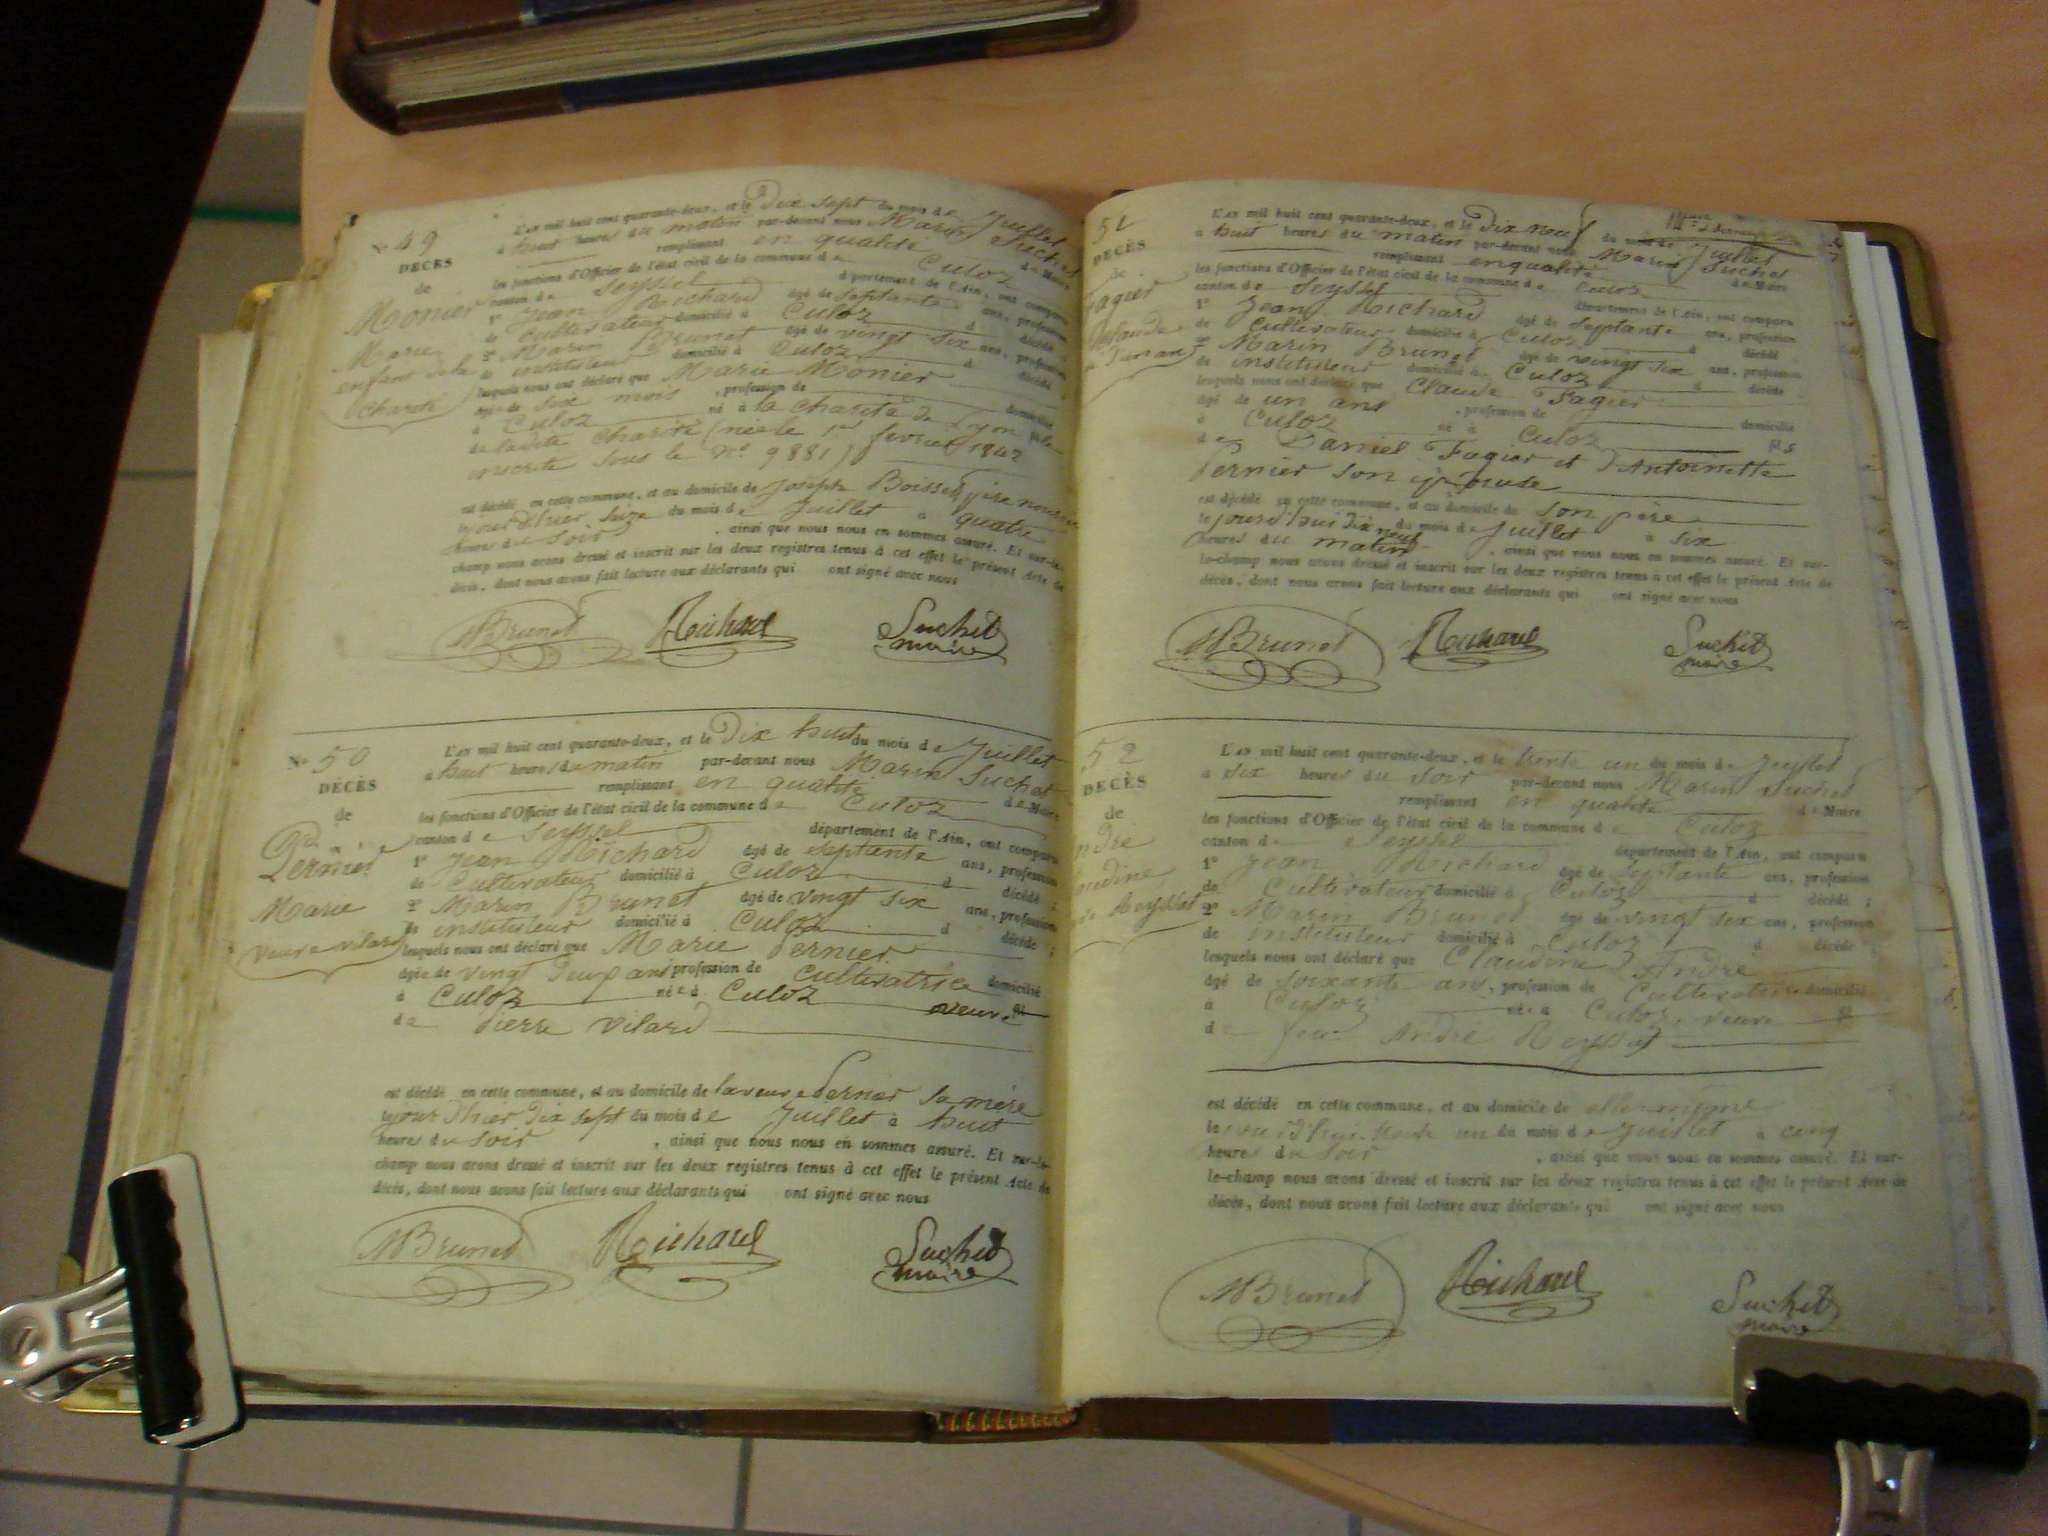 No 49
DÉCÈS
de
Monier
Marie
enfant de la
charité
L'AN mil huit cent quarante-deux, et le Dix sept du mois de Juillet
à huit heures du matin par-devant nous Marin Suchet
remplissant en qualité de Maire
les fonctions d'Officier de l'état civil de la commune de Culoz
canton de Seyssel département de l'Ain, ont comparu
1º Jean Richard âgé de septante ans, profession
de Cultivateur domicilié à Culoz d décédé ;
2º Marin Brunet âgé de vingt six ans, profession
de instituteur domicilié à Culoz d décédé ;
lesquels nous ont déclaré que Marie Monier
âgé de six mois , profession de domicilié
à Culoz né à la charité de Lyon fille
de ladite charité (née le 1er fevrier 1842
inscrite sous le No 9881)
est décédé en cette commune, et au domicile de Joseph Boissel, père
le jour d'hier seize du mois de Juillet à quatre
heures du soir , ainsi que nous nous en sommes assuré. Et sur-le-
champ nous avons dressé et inscrit sur les deux registres tenus à cet effet le présent Acte de
décès, dont nous avons fait lecture aux déclarants qui ont signé avec nous
MBrunet Richard Suchet
maire
No 50
DÉCÈS
de
Pernier
Marie
veuve vilard
L'AN mil huit cent quarante-deux, et le Dix huit du mois de Juillet
à huit heures du matin par-devant nous Marin Suchet
remplissant en qualité de Maire
les fonctions d'Officier de l'état civil de la commune de Culoz
canton de Seyssel département de l'Ain, ont comparu
1º Jean Richard âgé de septante ans, profession
de Cultivateur domicilié à Culoz d décédé ;
2º Marin Brunet âgé de vingt six ans, profession
de instituteur domicilié à Culoz d décédé ;
lesquels nous ont déclaré que Marie Pernier
âgée de vingt ans profession de cultivatrice domicilié
à Culoz née à Culoz veuve
de Pierre Vilard
est décédé en cette commune, et au domicile de la veuve Pernier sa mère
le jour d'hier Dix sept du mois de Juillet à huit
heures du soir , ainsi que nous nous en sommes assuré. Et sur-le-
champ nous avons dressé et inscrit sur les deux registres tenus à cet effet le présent Acte de
décès, dont nous avons fait lecture aux déclarants qui ont signé avec nous
MBrunet Richard Suchet
maire
51
DÉCÈS
de
Fagier
Claude
L'AN mil huit cent quarante-deux, et le Dix neuf du mois de Juillet
à huit heures du matin par-devant nous Marin Suchet
remplissant en qualité de Maire
les fonctions d'Officier de l'état civil de la commune de Culoz
canton de Seyssel département de l'Ain, ont comparu
1º Jean Richard âgé de septante ans, profession
de Cultivateur domicilié à Culoz d décédé ;
2º Marin Brunet âgé de vingt six ans, profession
de instituteur domicilié à Culoz d décédé ;
lesquels nous ont déclaré que Claude Fagier
âgé de un ans , profession de domicilié
à Culoz né à Culoz fils
de Daniel Fagier et d'Antoinette
Pernier son epouse
est décédé en cette commune, et au domicile de son père
le jourd'hui Dix neuf du mois de Juillet à six
heures du matin , ainsi que nous nous en sommes assuré. Et sur-
le-champ nous avons dressé et inscrit sur les deux registres tenus à cet effet le présent Acte de
décès, dont nous avons fait lecture aux déclarants qui ont signé avec nous
MBrunet Richard Suchet
maire
52
DÉCÈS
de
ndré
audine
Reysset
L'AN mil huit cent quarante-deux, et le trente un du mois de Juillet
à six heures du soir par-devant nous Marin Suchet
remplissant en qualité de Maire
les fonctions d'Officier de l'état civil de la commune de Culoz
canton de Seyssel département de l'Ain, ont comparu
1º Jean Richard âgé de septante ans, profession
de Cultivateur domicilié à Culoz d décédé ;
2º Marin Brunet âgé de vingt six ans, profession
de instituteur domicilié à Culoz d décédé ;
lesquels nous ont déclaré que Claudine André
âgé de soixante ans, profession de Cultivatrice domicilié
à Culoz née à Culoz, veuve
de feu André Reysset
est décédé en cette commune, et au domicile de elle même
le jourd'hui trente un du mois de Juillet à cinq
heures du soir , ainsi que nous nous en sommes assuré. Et sur-
le-champ nous avons dressé et inscrit sur les deux registres tenus à cet effet le présent Acte de
décès, dont nous avons fait lecture aux déclarants qui ont signé avec nous
MBrunet Richard Suchet
maire